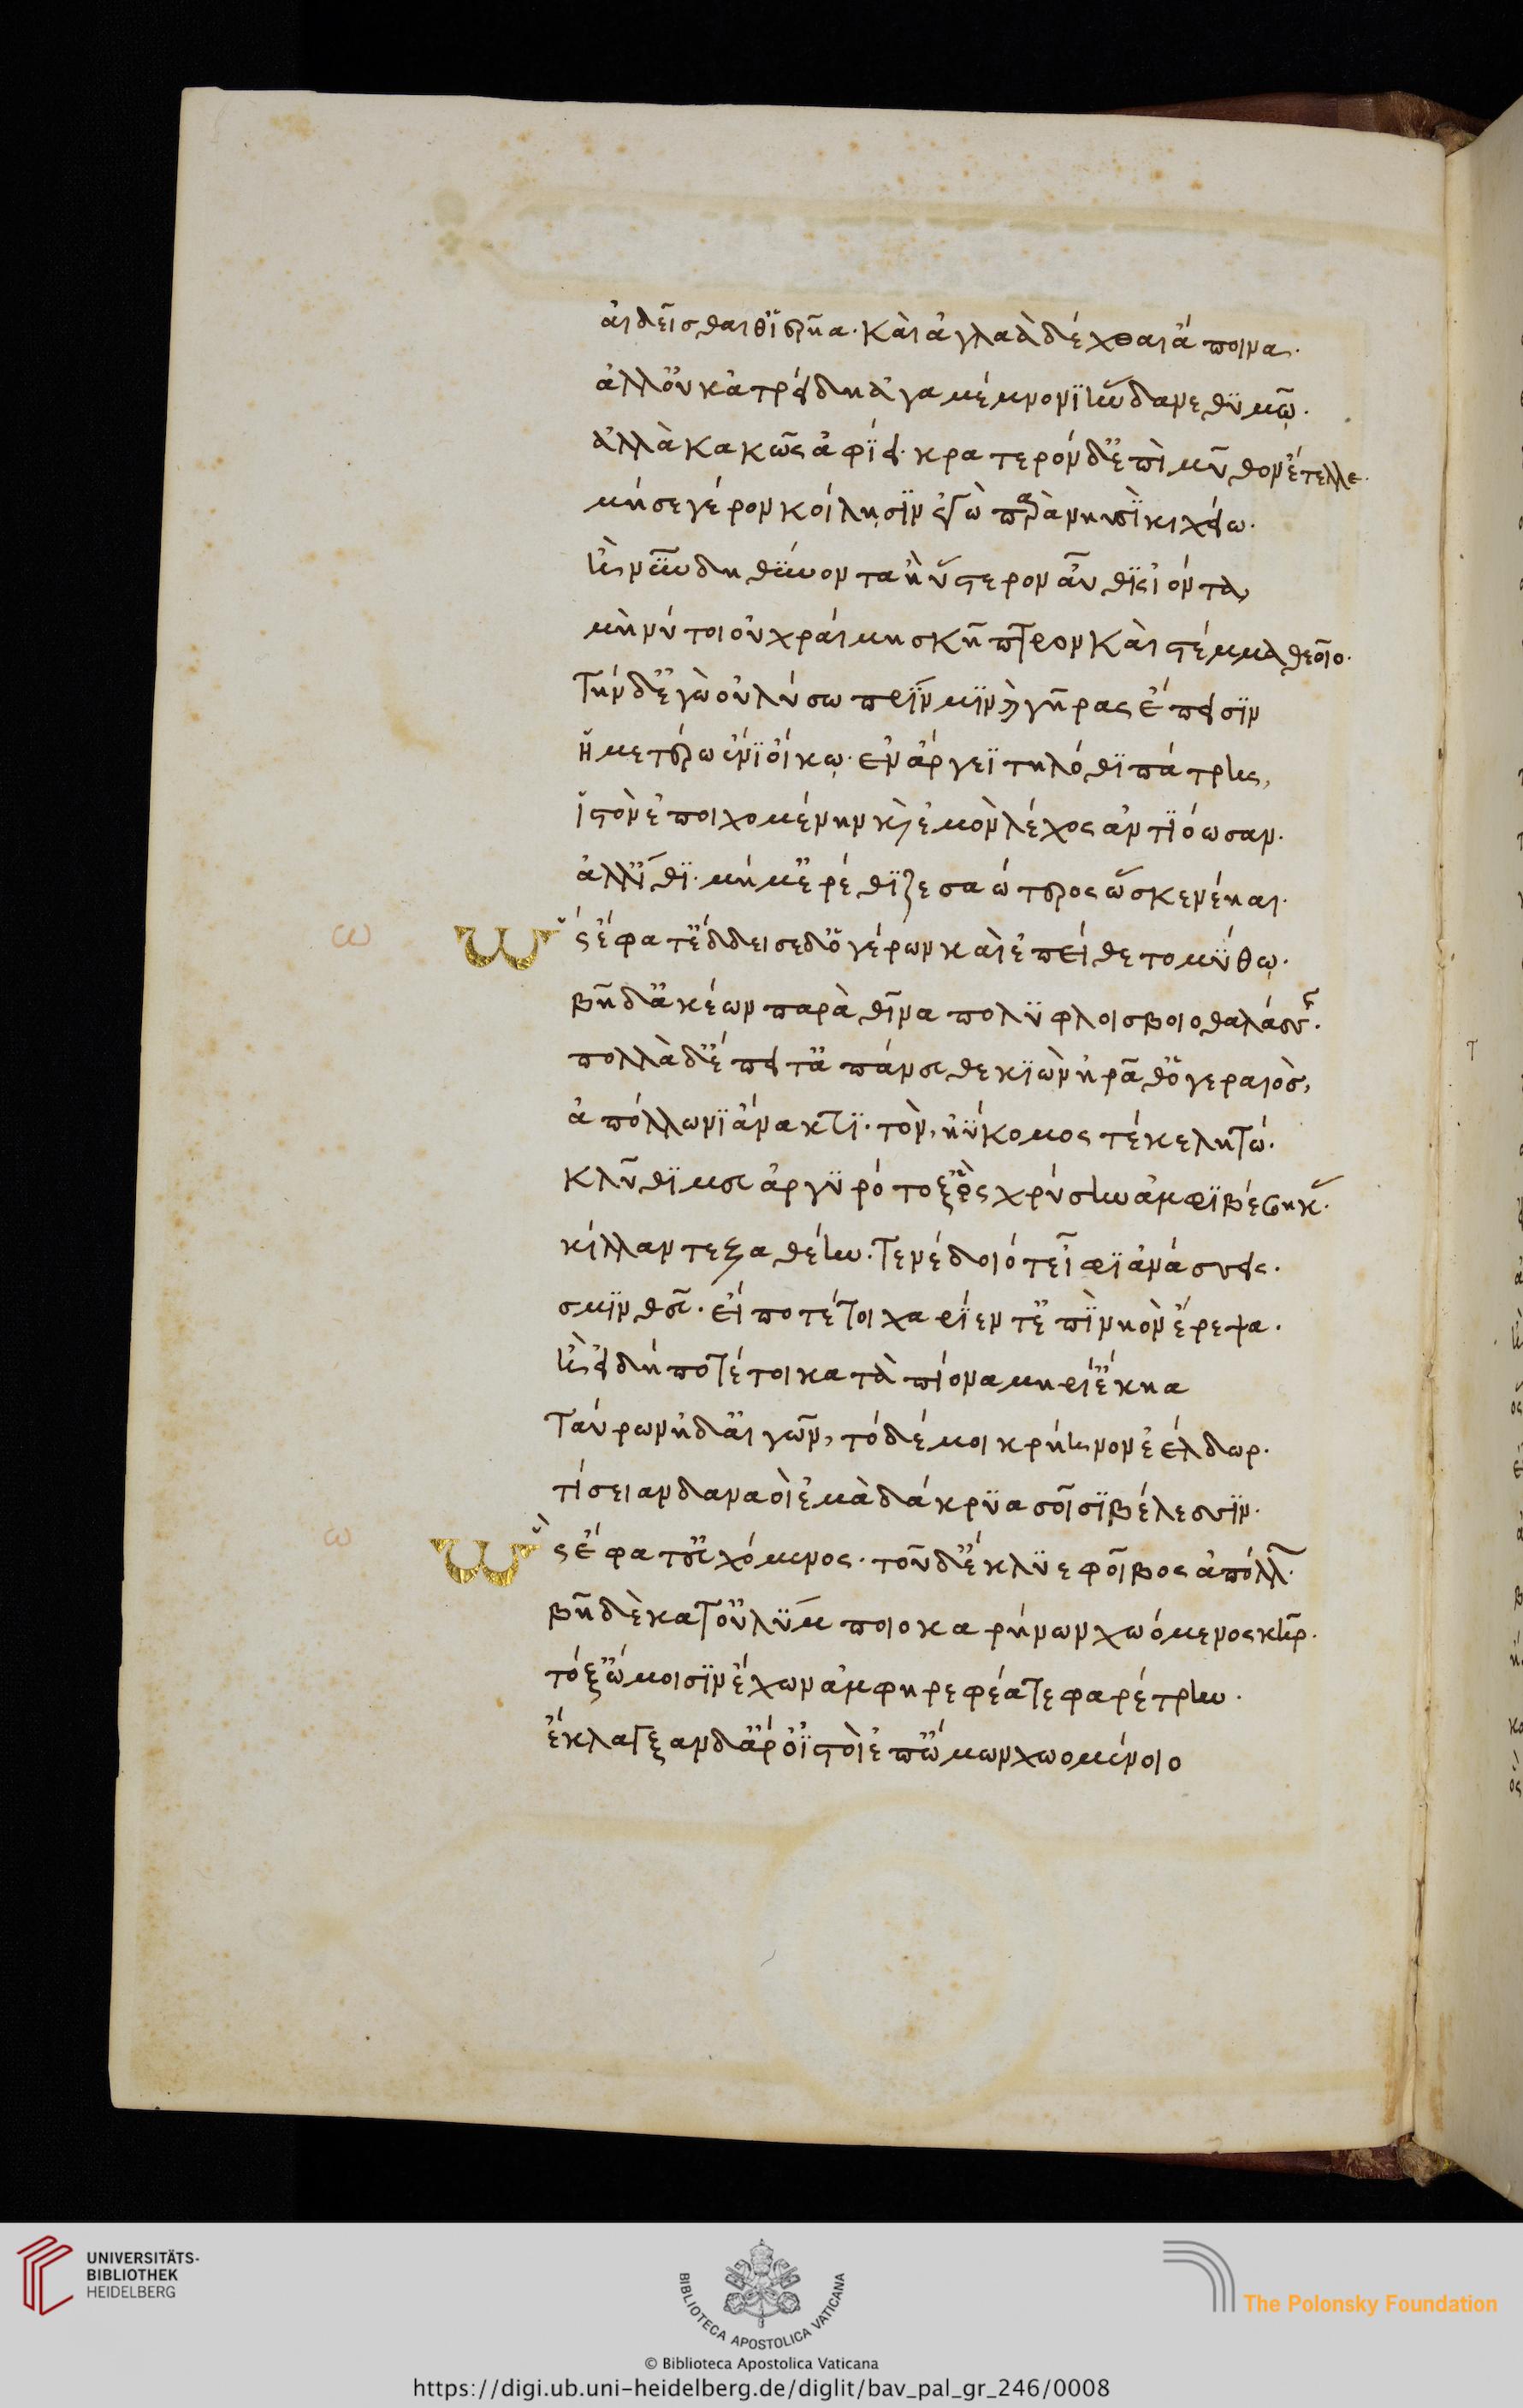 αἰδεῖσθαι θ' ἱερῆα· καὶ ἀγλαὰ δέχθαι ἄποινα.
ἀλλ' οὐκ ἀτρείδῃ ἀγαμέμνονϊ ἥνδανε θϋμῷ.
ἀλλὰ κακῶς ἀφίει· κρατερὸν δ' ἐπὶ μῦθον ἔτελλε.
μή σε γέρον κοίλῃσϊν ἐγὼ παρὰ νηυσὶ κιχείω.
ἢ νῦν δηθύνοντα ἢ ὕστερον αὖθϊς ἰόντα,
μὴ νύ τοι οὐ χραίσμῃ σκῆπτρον καὶ στέμμα θεοῖο.
Τὴν δ' ἐγὼ οὐ λύσω πρίν μϊν καὶ γῆρας ἔπεισϊν
ἡμετέρῳ ἐνϊ οἴκῳ· ἐν ἄργεϊ τηλόθϊ πάτρης,
ἱστὸν ἐποιχομένην καὶ ἐμὸν λέχος ἀντϊόωσαν.
ἀλλ' ἴθϊ· μή μ' ἐρέθϊζε σαώτερος ὥς κε νέηαι.
Ὣς ἔφατ' ἔδδεισε δ' ὁ γέρων καὶ ἐπείθετο μύθῳ.
βῆ δ' ἀκέων παρὰ θῖνα πολϋφλοίσβοιο θαλάσσης.
πολλὰ δ' ἔπειτ' ἀπάνευθε κϊὼν ἠρᾶθ' ὁ γεραιὸς,
ἀπόλλωνϊ ἄνακτϊ· τὸν, ἠΰκομος τέκε λητώ.
κλῦθϊ μευ ἀργϋρότοξ' ὃς χρύσην ἀμφϊβέβηκας.
κίλλαν τε ζαθέην. Τενέδοιό τε ἶφϊ ἀνάσσεις.
σμϊνθεῦ. εἴ ποτέ τοι χαρίεντ' ἐπϊ νηὸν ἔρεψα.
ἢ εἰ δή ποτέ τοι κατὰ πίονα μηρί' ἔκηα
Ταύρων ἠδ' αἰγῶν, τόδέ μοι κρήηνον ἐέλδωρ.
τίσειαν δαναοὶ ἐμὰ δάκρϋα σοῖσϊ βέλεσσϊν.
Ὣς ἔφατ' εὐχόμενος. τοῦ δ' ἔκλϋε φοῖβος ἀπόλλων.
βῆ δὲ κατ' οὐλύμποιο καρήνων χωόμενος κῆρ.
τόξ' ὤμοισϊν ἔχων ἀμφηρεφέα τε φαρέτρην.
ἔκλαγξαν δ' ἄρ' ὀϊστοὶ ἐπ' ὤμων χωομένοιο
ω
ω
UNIVERSITÄTS-
BIBLIOTHEK
HEIDELBERG
BIBLIOTECA APOSTOLICA VATICANA
The Polonsky Foundation
© Biblioteca Apostolica Vaticana
https://digi.ub.uni-heidelberg.de/diglit/bav_pal_gr_246/0008